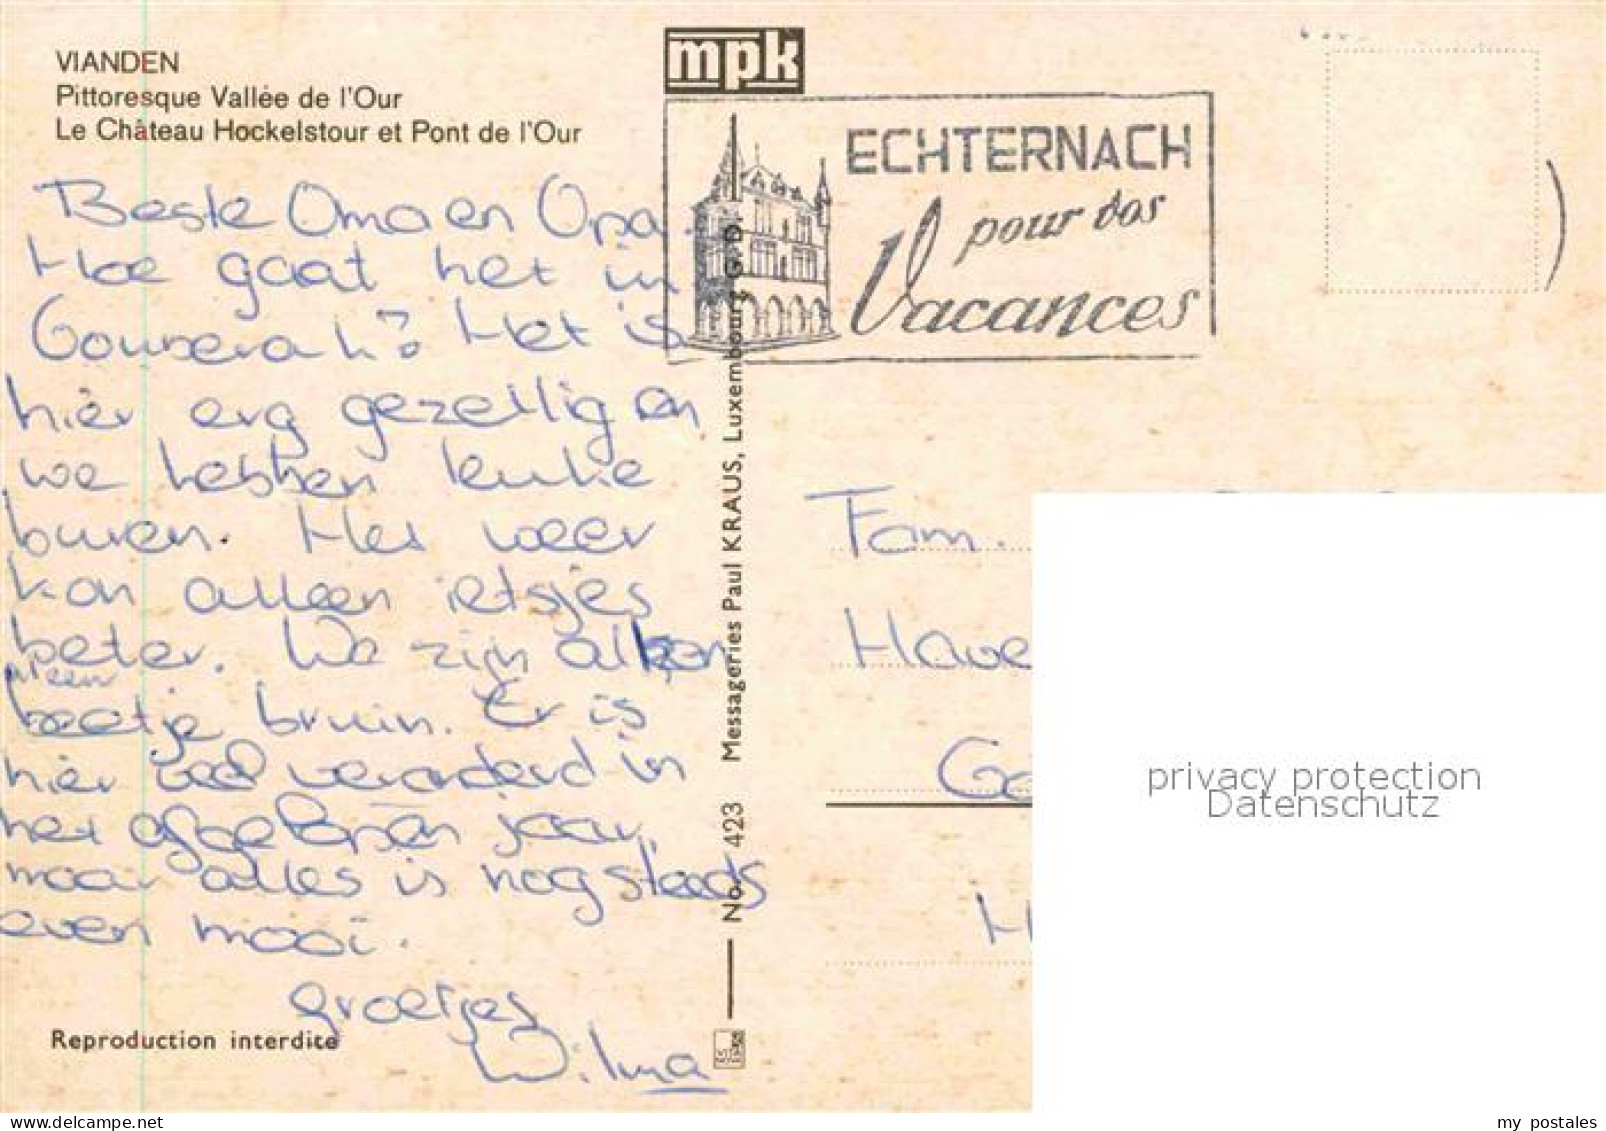 VIANDEN
Pittoresque Vallée de l'Our
Le Château Hockelstour et Pont de l'Our
mpk
ECHTERNACH
pour vos
Vacances
Beste Oma en Opa.
Hoe gaat het in
Gouderak? Het is
hier erg gezellig en
we hebben leuke
buren. Het weer
kon alleen ietsjes
beter. We zijn
al een
beetje bruin. Er is
hier veel veranderd in
het afgelopen jaar,
maar alles is nog steeds
even mooi.
groetjes
Wilma
Reproduction interdite
No. 423 Messageries Paul KRAUS, Luxembourg G.D.
Fam.
Have
Go
H
privacy protection
Datenschutz
my postales